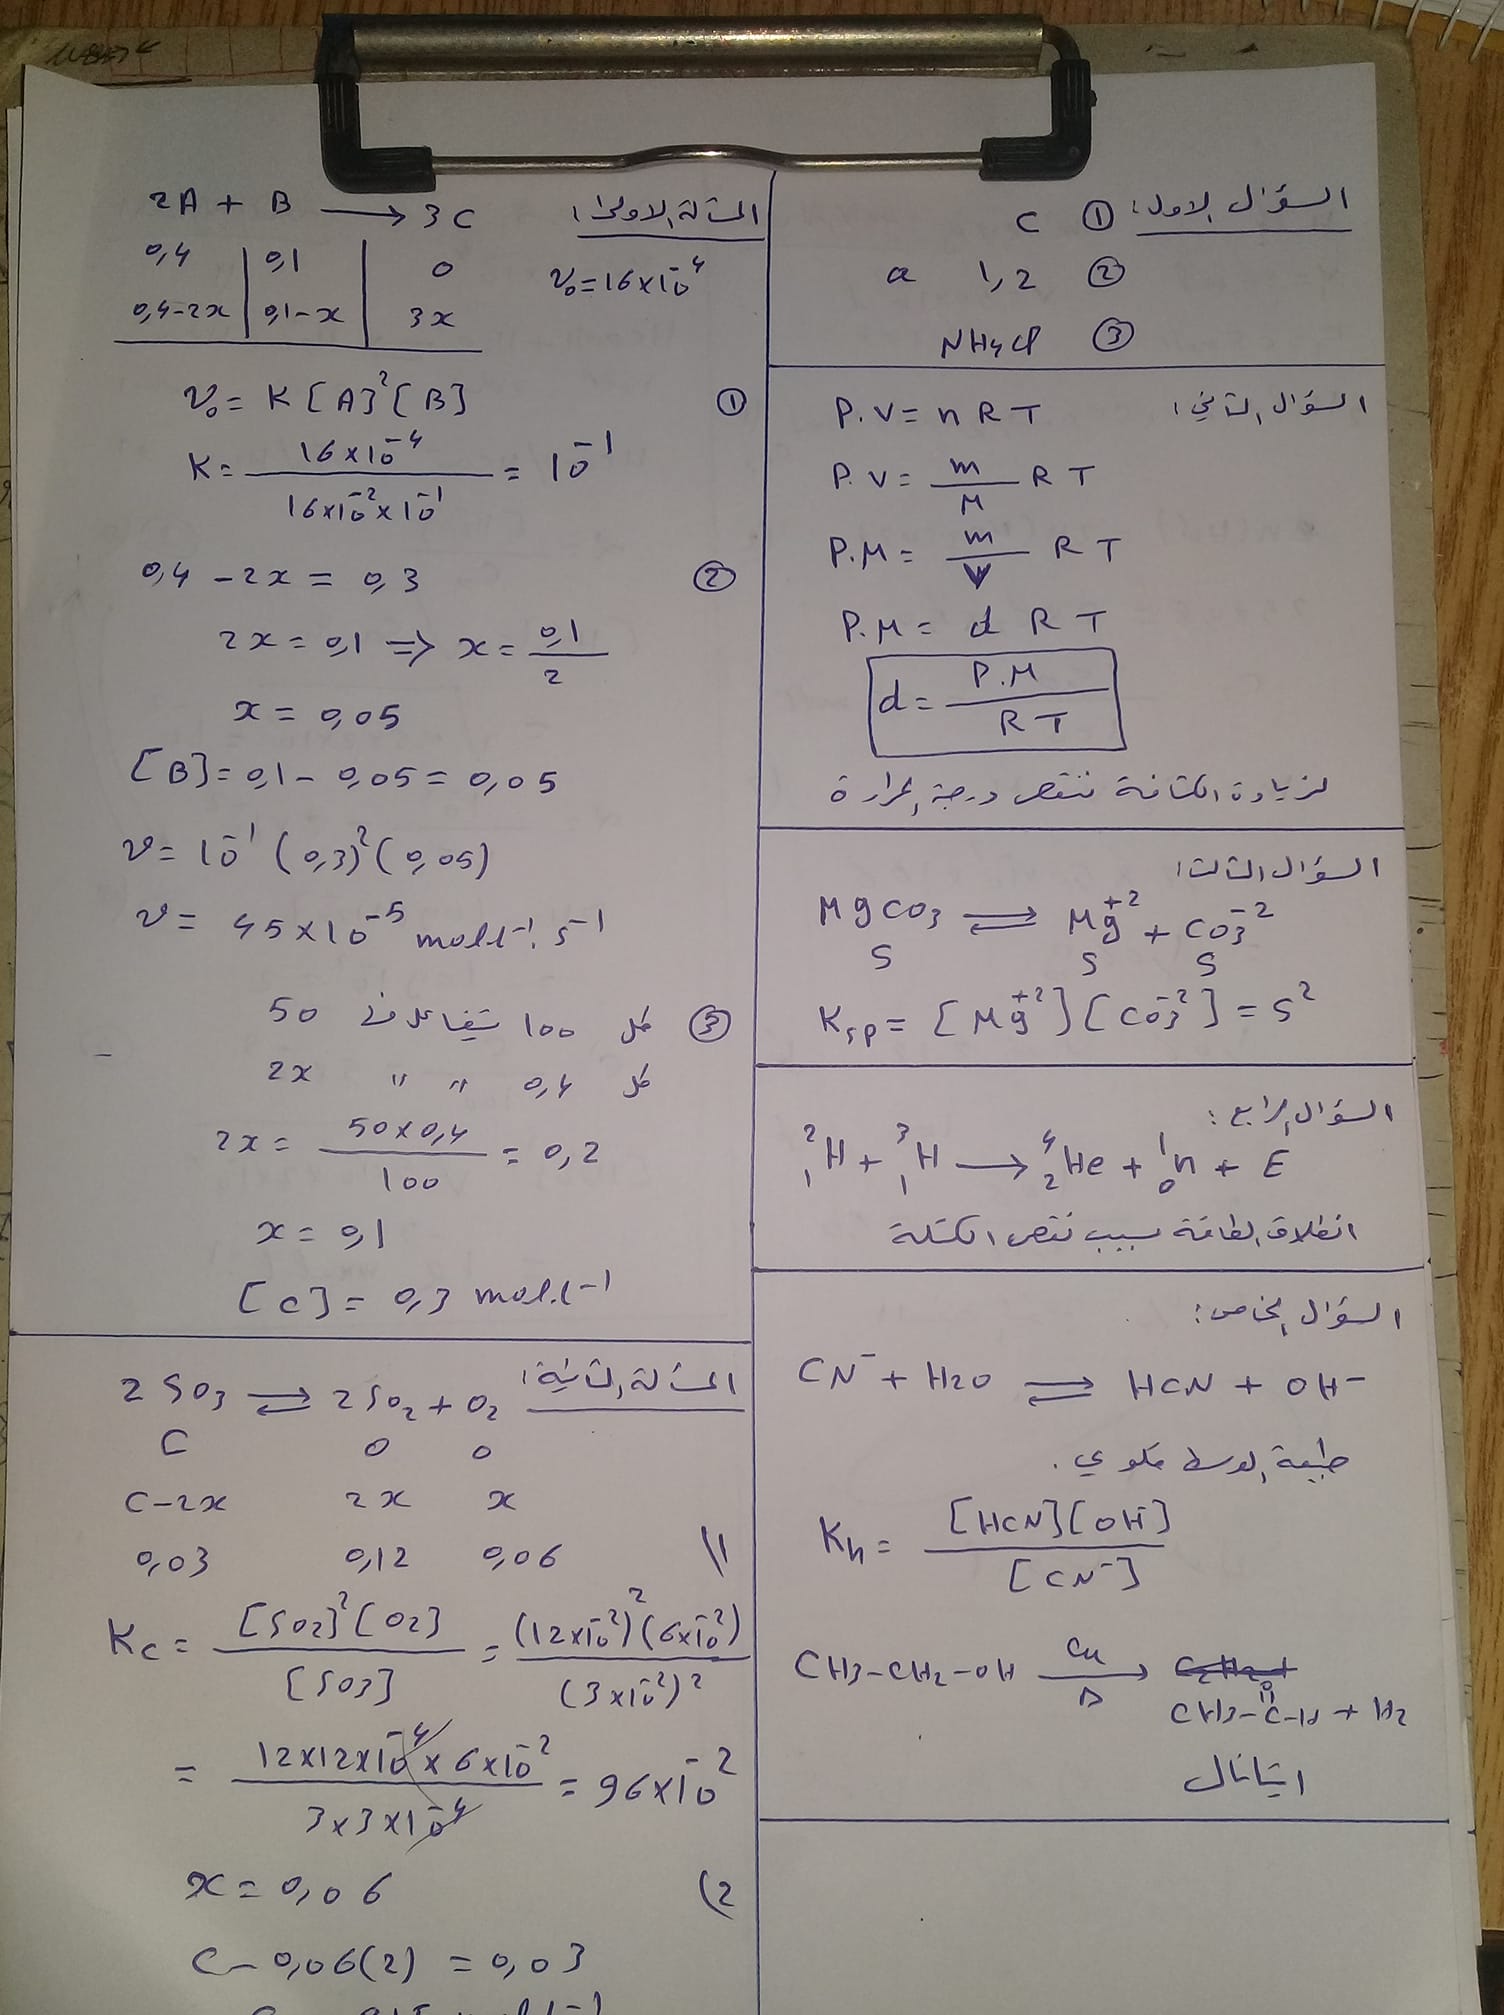 السؤال الاول:
① C
② 1,2 a
③ NH4Cl
السؤال الثاني:
P.V = n R T
P.V = m/M R T
P.M = m/V R T
P.M = d R T
d = P.M / R T
لزيادة الكثافة ننقص درجة الحرارة
السؤال الثالث:
MgCO3 ⇌ Mg+2 + CO3-2
S S S
Ksp = [Mg+2][CO3-2] = S²
السؤال الرابع:
²₁H + ³₁H → ⁴₂He + ¹₀n + E
انطلاق الطاقة بسبب نقص الكتلة
السؤال الخامس:
CN⁻ + H2O ⇌ HCN + OH⁻
طبيعة الوسط قلوي.
Kh = [HCN][OH⁻] / [CN⁻]
CH3-CH2-OH →(Cu, Δ)
CH3-C(=O)-H + H2
ايتانال
المسألة الاولى:
2A + B → 3C
0,4 | 0,1 | 0
v₀ = 16×10⁻⁴
0,4-2x | 0,1-x | 3x
① v₀ = K [A]² [B]
K = 16×10⁻⁴ / 16×10⁻²×10⁻¹ = 10⁻¹
② 0,4 - 2x = 0,3
2x = 0,1 ⇒ x = 0,1/2
x = 0,05
[B] = 0,1 - 0,05 = 0,05
v = 10⁻¹ (0,3)² (0,05)
v = 45×10⁻⁵ mol.l⁻¹.s⁻¹
③ كل 100 يتفاعل منه 50
كل 0,4 " " 2x
2x = 50×0,4 / 100 = 0,2
x = 0,1
[C] = 0,3 mol.l⁻¹
المسألة الثانية:
2SO3 ⇌ 2SO2 + O2
C 0 0
C-2x 2x x
1) 0,03 0,12 0,06
Kc = [SO2]²[O2] / [SO3] = (12×10⁻²)²(6×10⁻²) / (3×10⁻²)²
= 12×12×10⁻⁴×6×10⁻² / 3×3×10⁻⁴ = 96×10⁻²
2) x = 0,06
C - 0,06(2) = 0,03